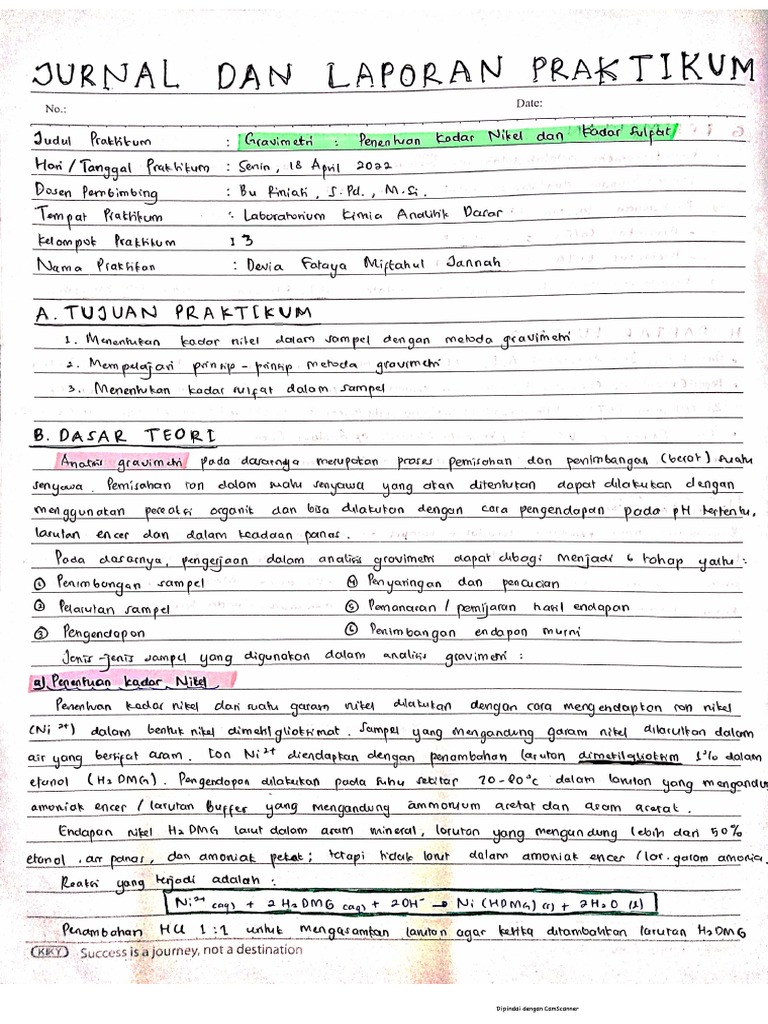 JURNAL DAN LAPORAN PRAKTIKUM
No.: Date:
Judul Praktikum : Gravimetri : Penentuan Kadar Nikel dan Kadar Sulfat
Hari / Tanggal Praktikum : Senin, 18 April 2022
Dosen Pembimbing : Bu Riniati, S.Pd., M.Si.
Tempat Praktikum : Laboratorium Kimia Analitik Dasar
Kelompok Praktikum : 3
Nama Praktikan : Devia Fataya Miftahul Jannah
A. TUJUAN PRAKTIKUM
1. Menentukan kadar nikel dalam sampel dengan metoda gravimetri
2. Mempelajari prinsip-prinsip metoda gravimetri
3. Menentukan kadar sulfat dalam sampel
B. DASAR TEORI
Analisis gravimetri pada dasarnya merupakan proses pemisahan dan penimbangan (berat) suatu
senyawa. Pemisahan ion dalam suatu senyawa yang akan ditentukan dapat dilakukan dengan
menggunakan pereaksi organik dan bisa dilakukan dengan cara pengendapan pada pH tertentu,
larutan encer dan dalam keadaan panas.
Pada dasarnya, pengerjaan dalam analisis gravimetri dapat dibagi menjadi 6 tahap yaitu :
① Penimbangan sampel ④ Penyaringan dan pencucian
② Pelarutan sampel ⑤ Pemanasan / pemijaran hasil endapan
③ Pengendapan ⑥ Penimbangan endapan murni
Jenis-jenis sampel yang digunakan dalam analisis gravimetri :
a) Penentuan Kadar Nikel
Penentuan kadar nikel dari suatu garam nikel dilakukan dengan cara mengendapkan ion nikel
(Ni²⁺) dalam bentuk nikel dimetilglioksimat. Sampel yang mengandung garam nikel dilarutkan dalam
air yang bersifat asam. Ion Ni²⁺ diendapkan dengan penambahan larutan dimetilglioksim 1% dalam
etanol (H2DMG). Pengendapan dilakukan pada suhu sekitar 70-80°c dalam larutan yang mengandung
amoniak encer / larutan Buffer yang mengandung ammonium asetat dan asam asetat.
Endapan nikel H2DMG larut dalam asam mineral, larutan yang mengandung lebih dari 50%
etanol, air panas, dan amoniak pekat; tetapi tidak larut dalam amoniak encer / lar. garam amonia.
Reaksi yang terjadi adalah :
Ni²⁺ (aq) + 2 H2DMG (aq) + 2OH⁻ → Ni (HDMG) (s) + 2H2O (l)
Penambahan HCl 1:1 untuk mengasamkan larutan agar ketika ditambahkan larutan H2DMG
KKY Success is a journey, not a destination
Dipindai dengan CamScanner